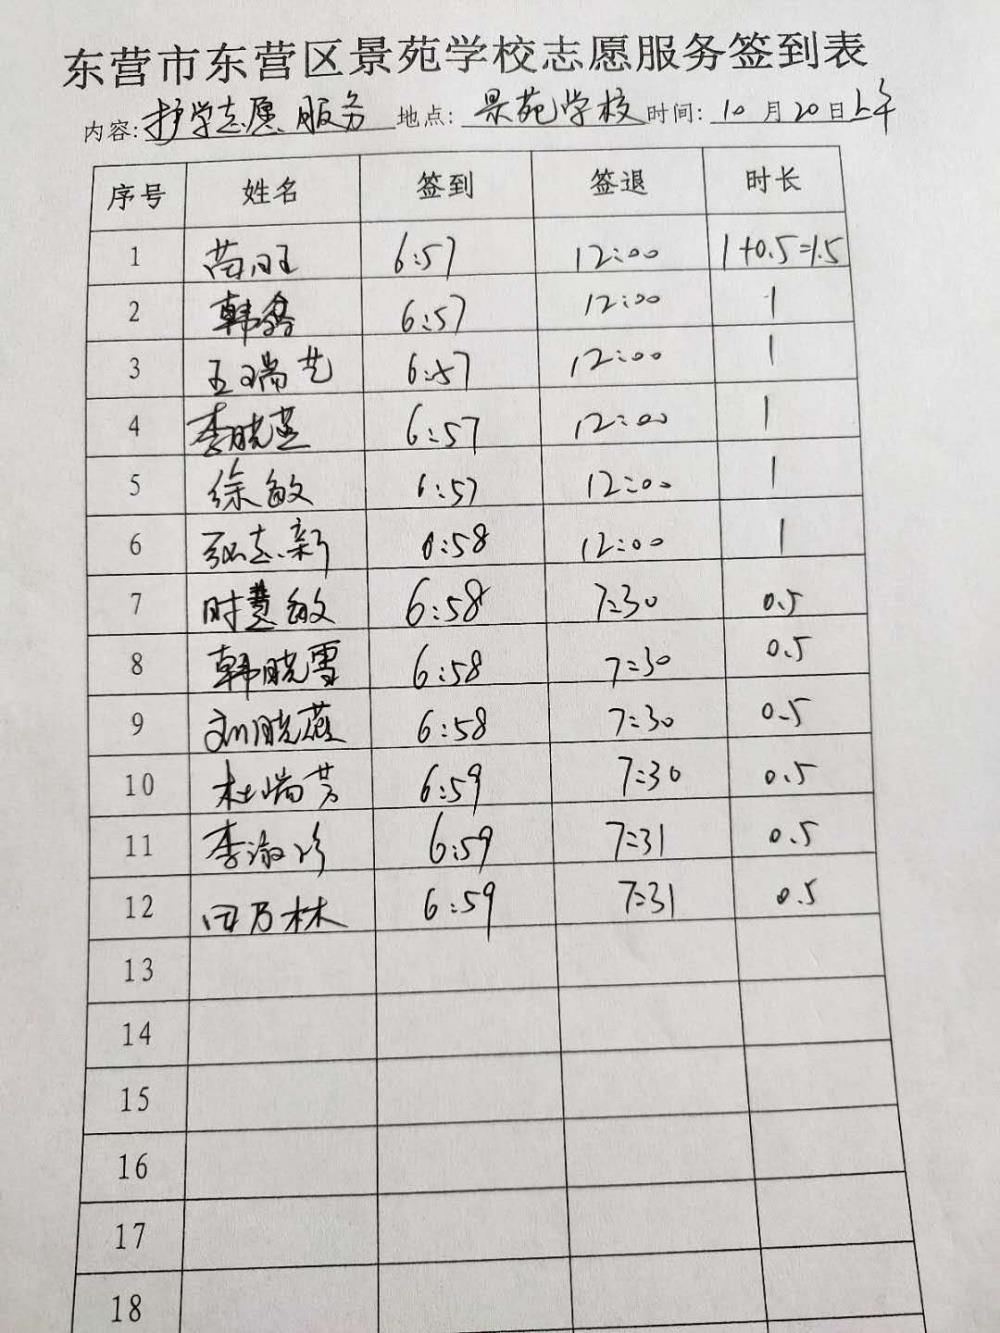 东营市东营区景苑学校志愿服务签到表
内容: 护学志愿服务 地点: 景苑学校 时间: 10月20日上午
序号 姓名 签到 签退 时长
1 苗旺 6:57 12:00 1+0.5=1.5
2 韩鑫 6:57 12:00 1
3 王瑞艺 6:57 12:00 1
4 李晓英 6:57 12:00 1
5 徐敏 6:57 12:00 1
6 张志新 6:58 12:00 1
7 时慧敏 6:58 7:30 0.5
8 韩晓雪 6:58 7:30 0.5
9 刘晓燕 6:58 7:30 0.5
10 杜瑞芳 6:59 7:30 0.5
11 李淑珍 6:59 7:31 0.5
12 田乃林 6:59 7:31 0.5
13
14
15
16
17
18